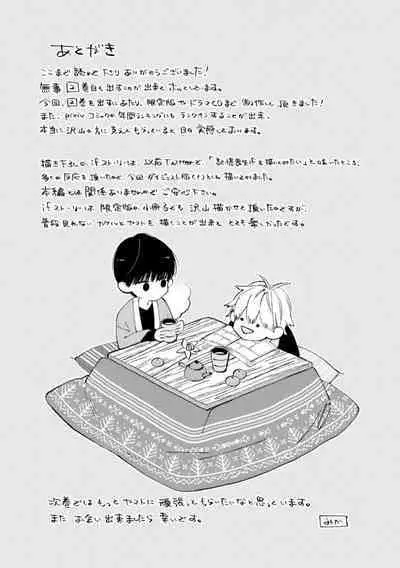 あとがき
ここまで読んで下さりありがとうございました!
無事2巻目も出すことが出来てホッとしています。
今回、2巻を出すにあたり、限定版やドラマCDまで制作して頂きました!
また、pixivコミックの年間ランキングにもランクインすることが出来、
本当に沢山の方に支えてもらっていると日々実感しております。
描き下ろしのifストーリーは、以前Twitterで「記憶喪失ネタを描いてみたい」と呟いたところ、
多くの反応を頂いたので今回ダイジェスト版(?)にて描いてみました。
本編とは関係ありませんのでご安心下さい。
ifストーリーは限定版の小冊子でも沢山描かせて頂いたのですが、
普段見れないカケルとヤマトを描くことが出来て とても楽しかったです。
次巻ではもっとヤマトに頑張ってもらいたいなと思っています。
また お会い出来ましたら幸いです。